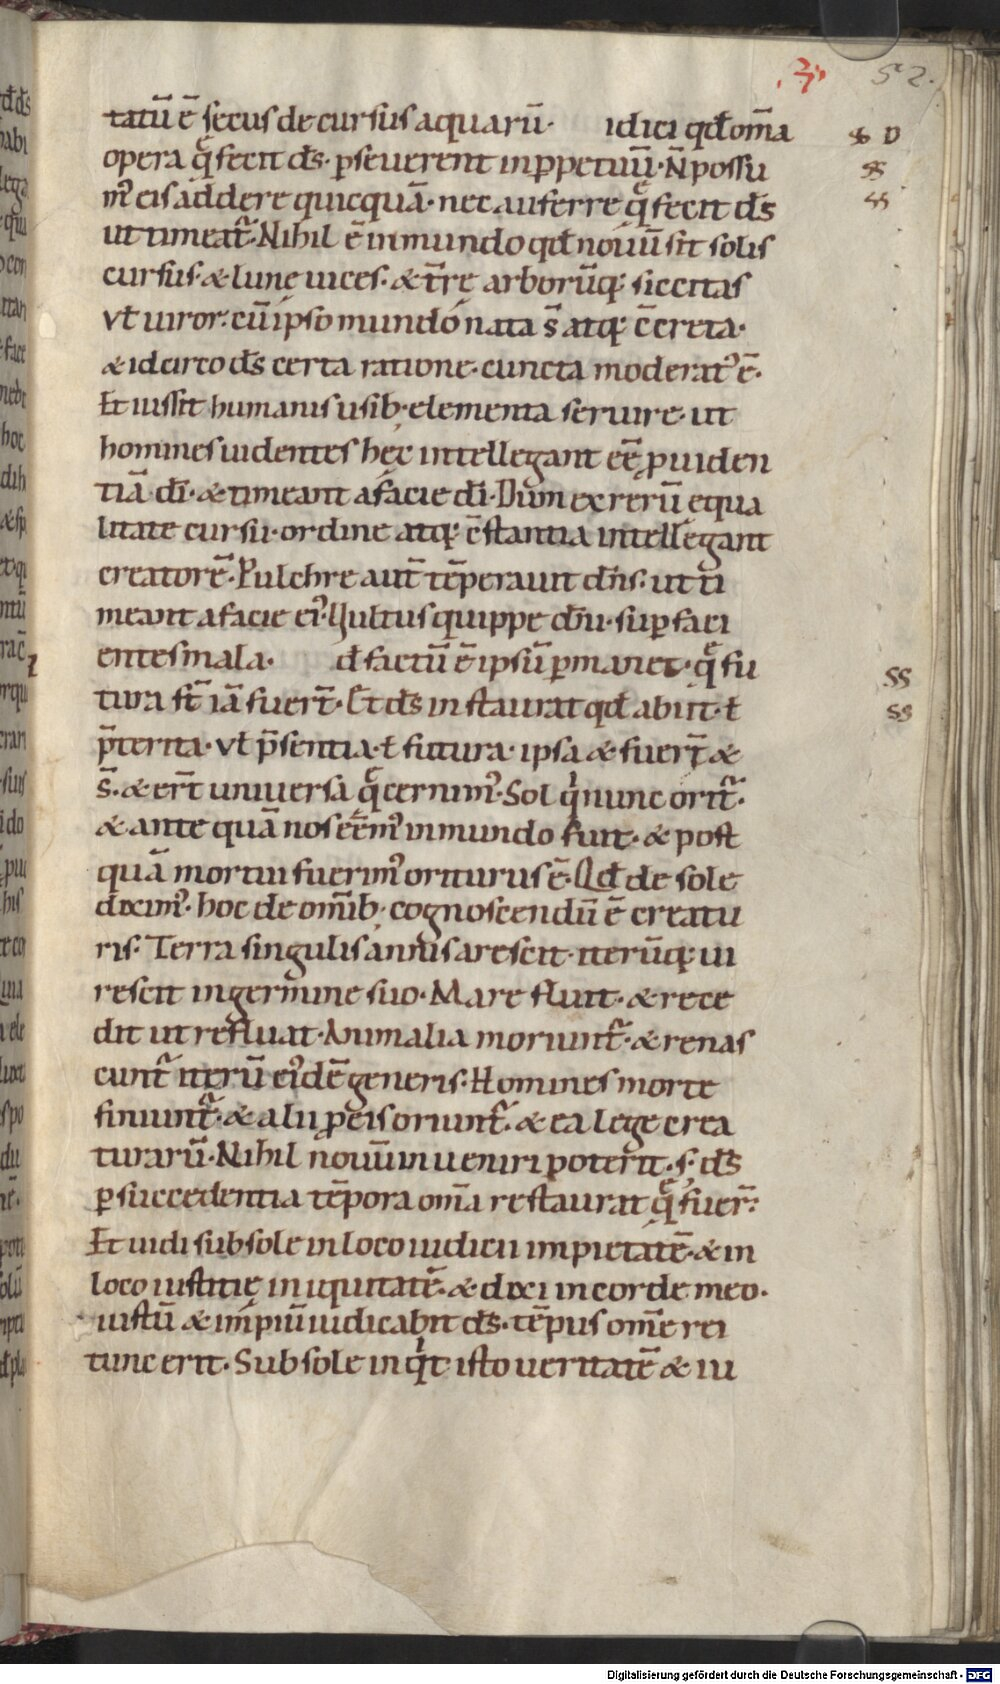 52.
tatū ē secus decursus aquarū. idici qđ om̄a
opera q̨ fecit ds̄. ꝑseuerent inꝑpetuū. N̄ possu
mꝰ eis addere quicquā. nec auferre q̨ fecit ds̄
ut timeat᷑. Nihil ē in mundo qđ nouū sit solis
cursus. & lunę uices. & t̄rę arborūq; siccitas
vƚ uiror. cū ipso mundo nata s̄ atq; c̄creta.
& idcirco ds̄ certa ratione. cuncta moderatꝰ ē.
Et iussit humanis usib; elementa seruire. ut
homines uidentes hęc intellegant eē̄ ꝓuiden
tiā dī. & timeant a facie dī. Dum ex rerū equa
litate cursu. ordine atq; c̄stantia intellegant
creatorē. Pulchre aut̄ tēperauit dn̄s. ut ti
meant a facie eiꝰ. Uultus quippe dn̄i. suꝑ faci
entes mala. đ factū ē ipsū ꝑmanet. q̨ fu
tura st̄ iā fuer̄t. Et ds̄ instaurat qđ abiit. ƚ
p̄terita. vƚ p̄sentia. ƚ futura. ipsa & fuer̄t &
s̄. & er̄t uniuersa q̨ cernimꝰ. Sol qͥ nunc orit᷑.
& ante quā nos eēmꝰ in mundo fuit. & post
quā mortui fuerimꝰ oriturus ē. Qđ de sole
diximꝰ. hoc de om̄ib; cognoscendū ē creatu
ris. Terra singulis annis arescit. iterūq; ui
rescit in germine suo. Mare fluit. & rece
dit ut refluat. Animalia moriunt᷑. & renas
cunt᷑ iterū eiꝰdē generis. Homines morte
finiunt᷑. & alii ꝓ eis oriunt᷑. & ea lege crea
turarū. Nihil nouū inueniri poterit. s; ds̄
ꝑ succedentia tēpora om̄a restaurat q̨ fuer̄.
Et uidi sub sole in loco iudicii impietatē. & in
loco iustitię iniquitatē. & dixi in corde meo.
iustū & impiū iudicabit ds̄. tēpus om̄e rei
tunc erit. Sub sole inqͥt isto ueritatē & iu
Digitalisierung gefördert durch die Deutsche Forschungsgemeinschaft - DFG